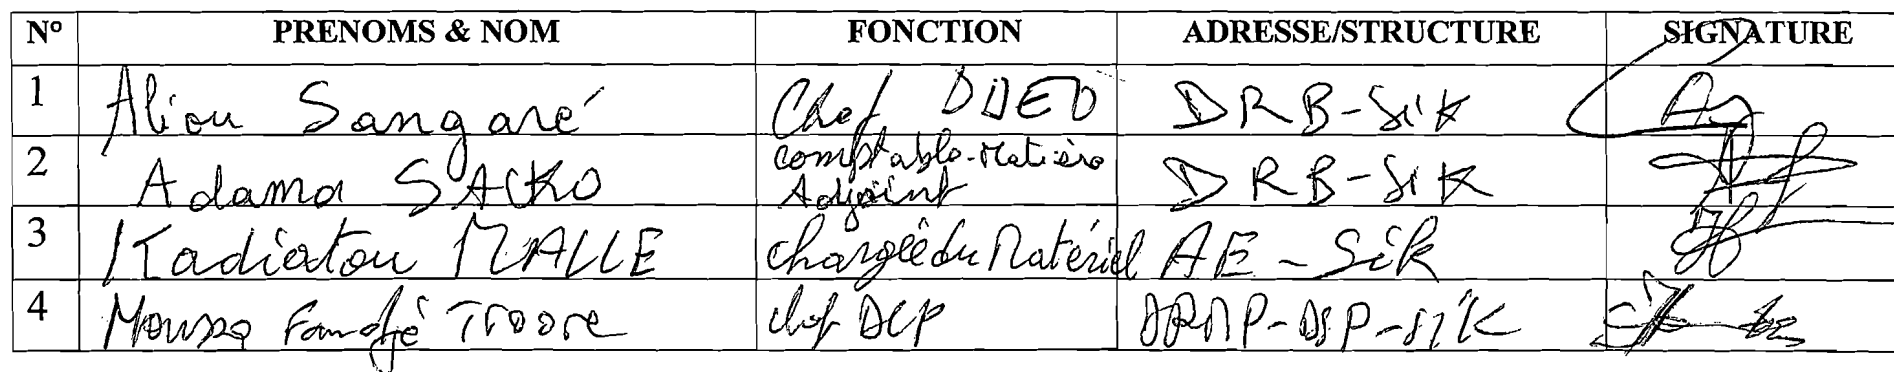 N° PRENOMS & NOM FONCTION ADRESSE/STRUCTURE SIGNATURE
1 Aliou Sangaré Chef DRB-Sik
2 Adama SACKO Comptable-Matière Adjoint DRB-Sik
3 Kadiatou MALLE chargée du Matériel AE-Sik
4 Moussa Traore chef DCP DRMP-DSP-Sik